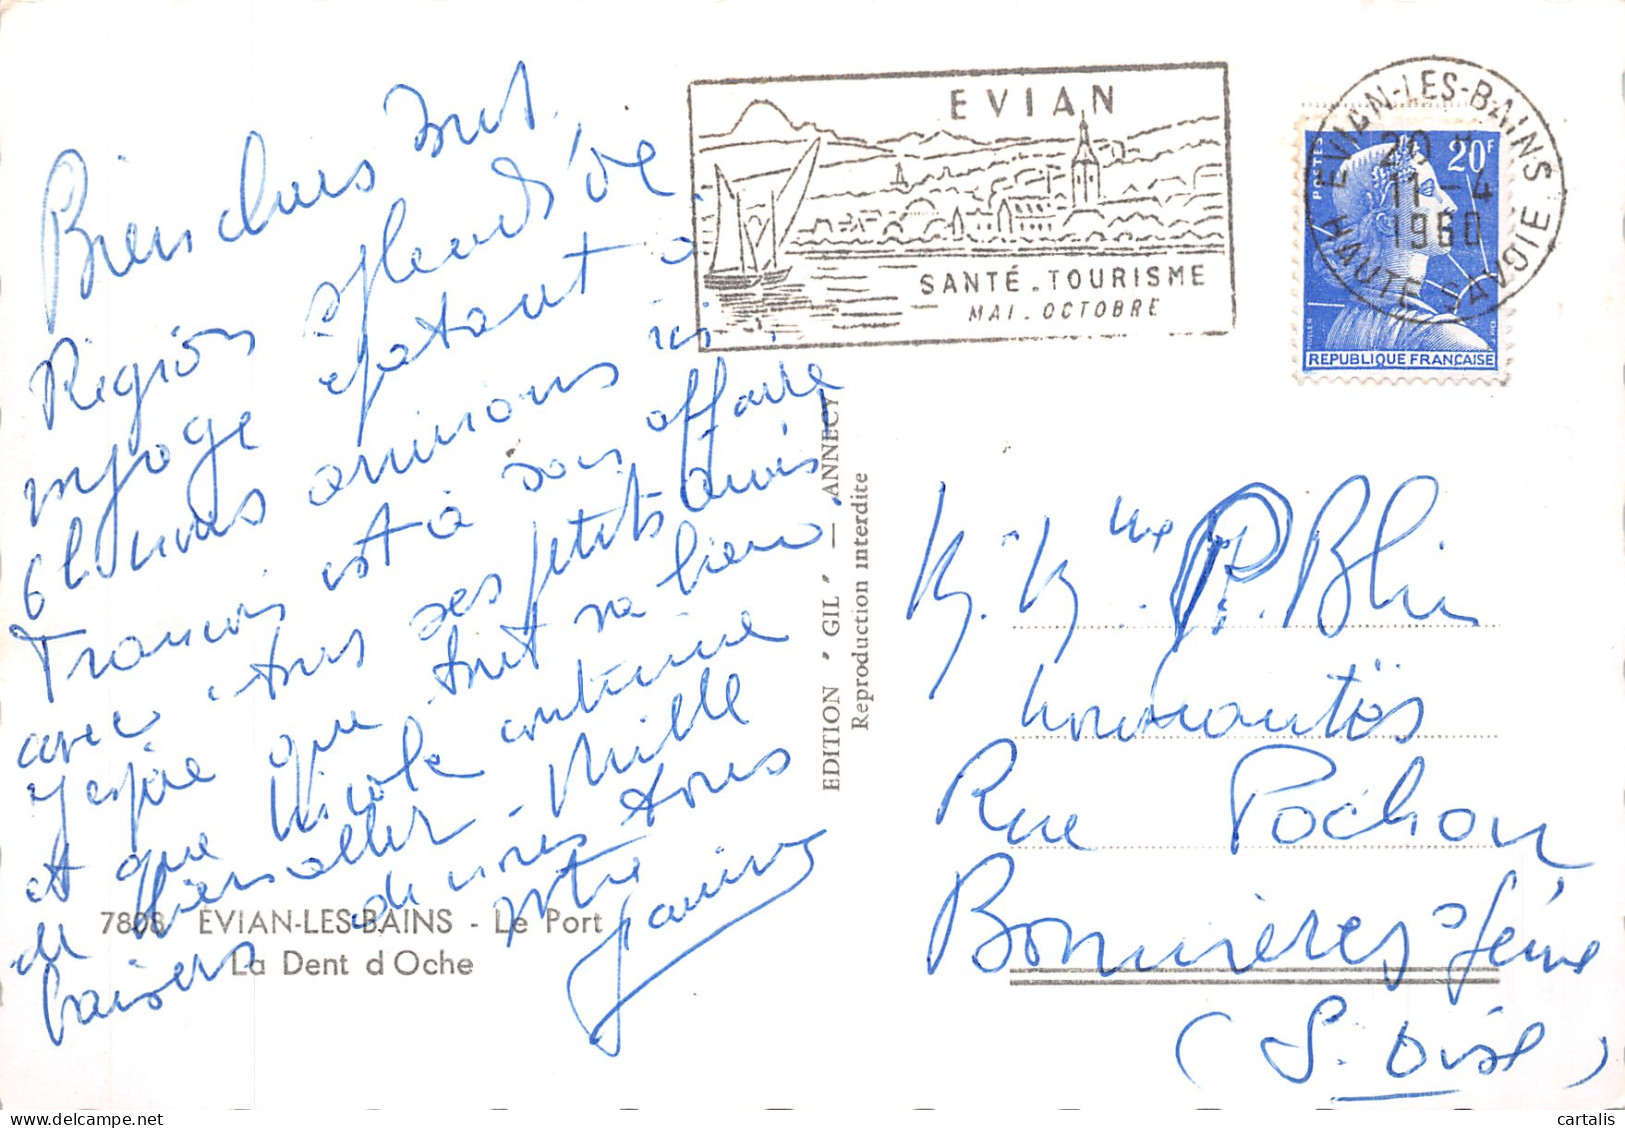 Bien chers tous
Région splendide
voyage épatant à
6 h nous arrivions ici
François est à son affaire
avec tous ses petits amis
J'espère que tout va bien
et que Nicole continue
de bien aller - Mille
baisers de nous tous
votre
Janine
7808 ÉVIAN-LES-BAINS - Le Port
La Dent d'Oche
EDITION "GIL" — ANNECY
Reproduction interdite
EVIAN
SANTÉ. TOURISME
MAI. OCTOBRE
EVIAN-LES-BAINS
20 H
11-4
1960
HAUTE SAVOIE
POSTES
20F
REPUBLIQUE FRANÇAISE
M. Mme P. Blin
Nouveautés
Rue Pochon
Bonnières s/Seine
(S. Oise)
cartalis